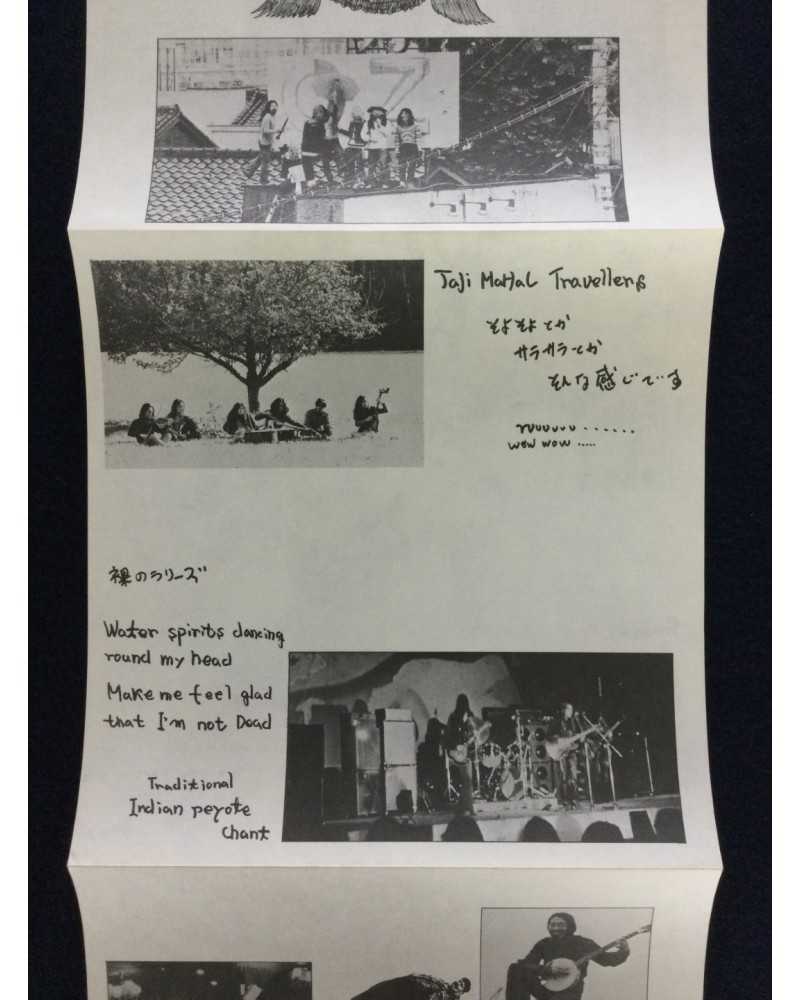 Taji Mahal Travellers
そよそよとか
サラサラとか
そんな感じです
vuuuuuu ......
wow wow .....
裸のラリーズ
Water spirits dancing
round my head
Make me feel glad
that I'm not Dead
Traditional
Indian peyote
Chant